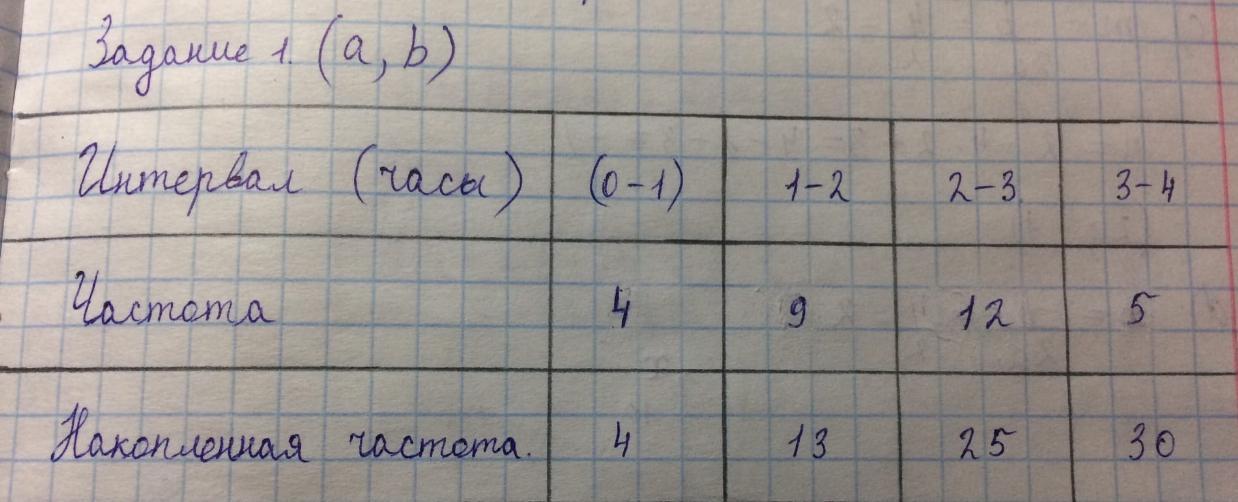 Задание 1. (a, b)
Интервал (часы) (0-1) 1-2 2-3 3-4
Частота 4 9 12 5
Накопленная частота. 4 13 25 30